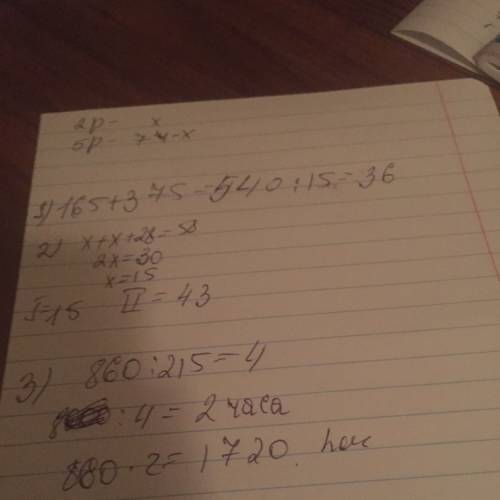 2р - x
5р - 74-x
1) 165+375=540:15=36
2) x+x+28=58
2x=30
x=15
I=15 II=43
3) 860:215=4
8 :4=2 часа
860·2=1720.